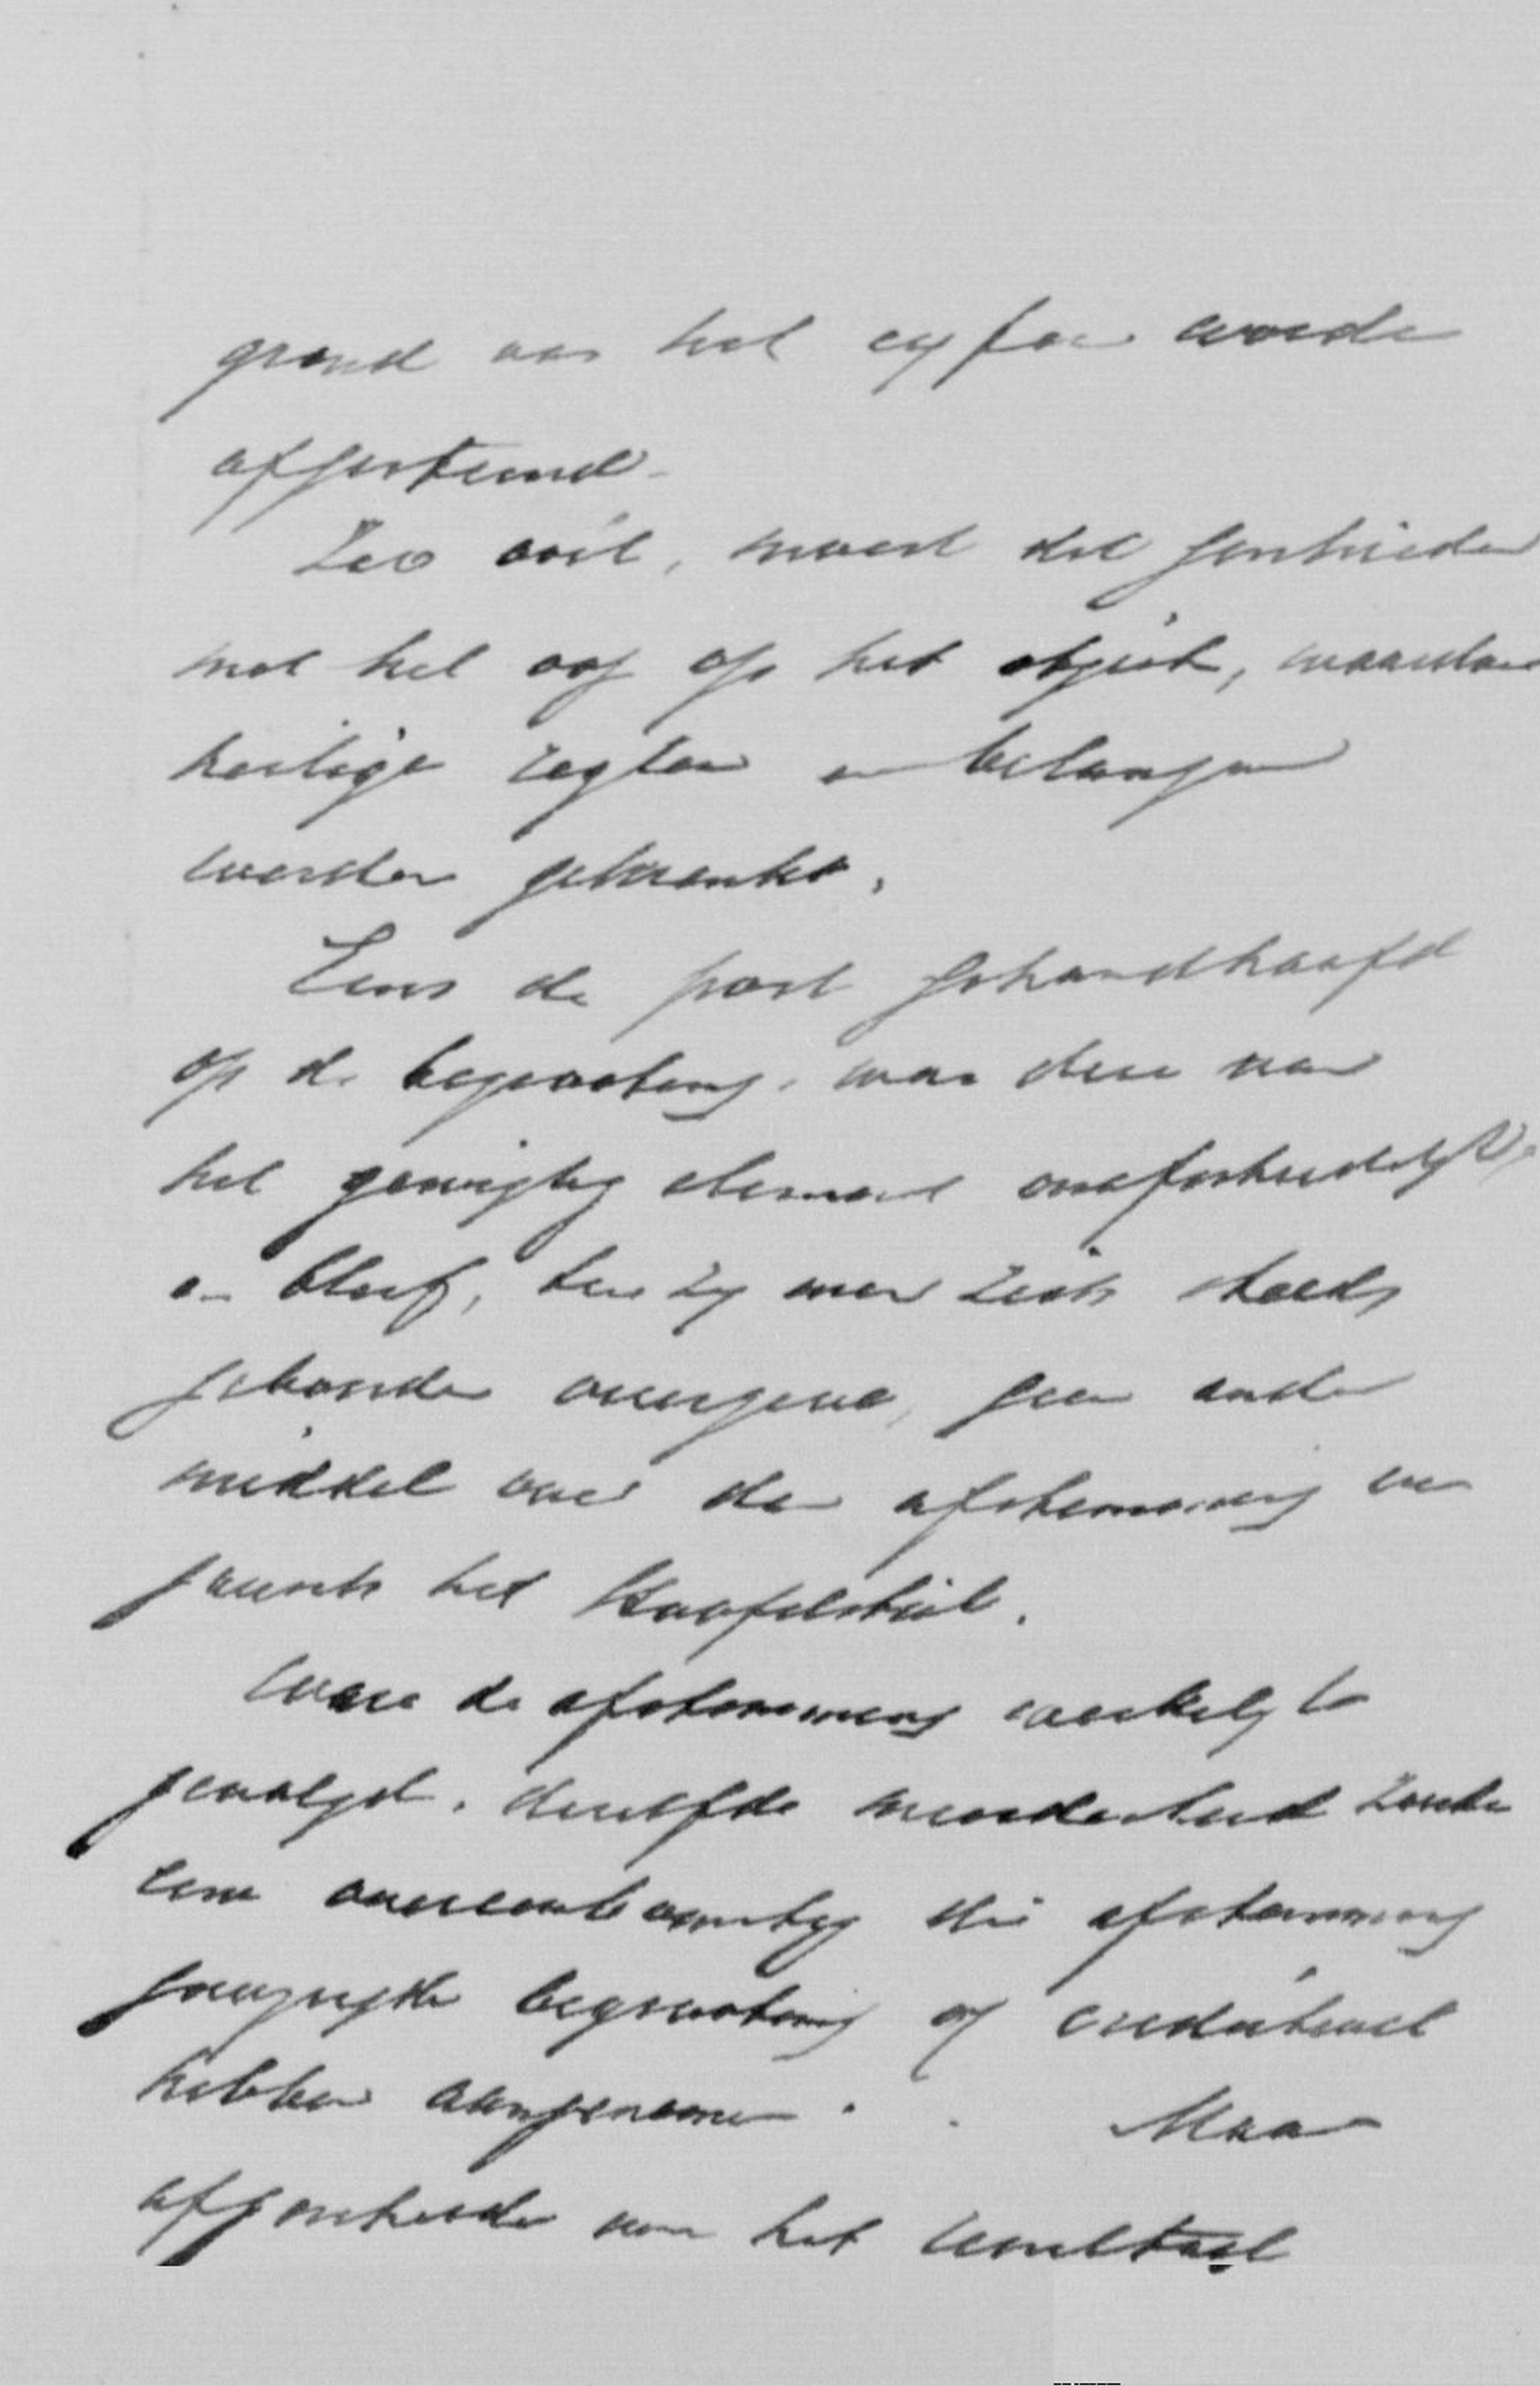 grond van het cyfer worde
afgestemd.
Zoo ooit, moest dit geschieden
met het oog op het objéct, waardoor
heilige regten en belangen
worden gekrenkt.
Eens de post gehandhaafd
op de begrooting, was deze van
het gewigtig element onafscheidelijk
en bleef, ten zy men zich steeds
gebonden overgeve, geen ander
middel over dan afstemming van
gansch het Hoofdstuk.
Ware de afstemming werkelyk
gevolgd, dezelfde meerderheid zoude
eene overeenkomstig die afstemming
gewyzigde begrooting of credietwet
hebben aangenomen. Maar
afgescheiden van het resultaat